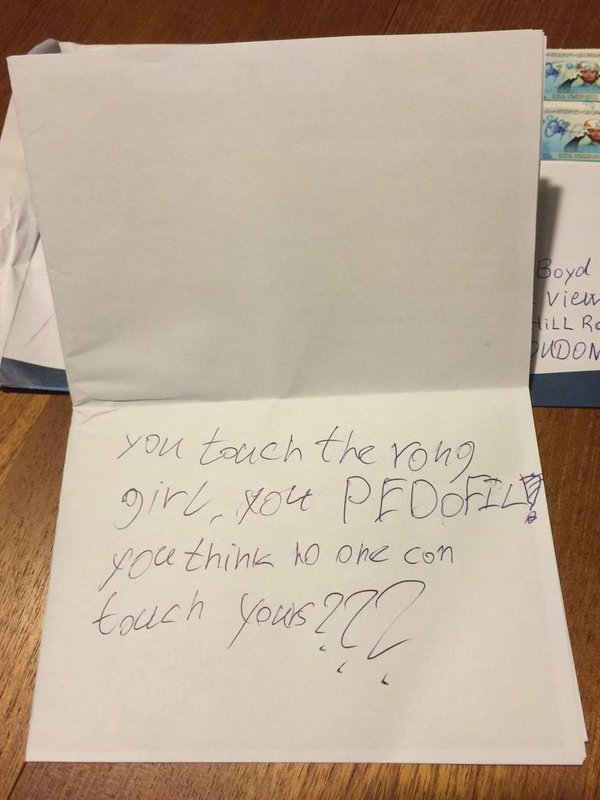 Boyd
View
HILL
LOUDON
you touch the rong
girl, you PEDOFIL!
you think no one con
touch yours???